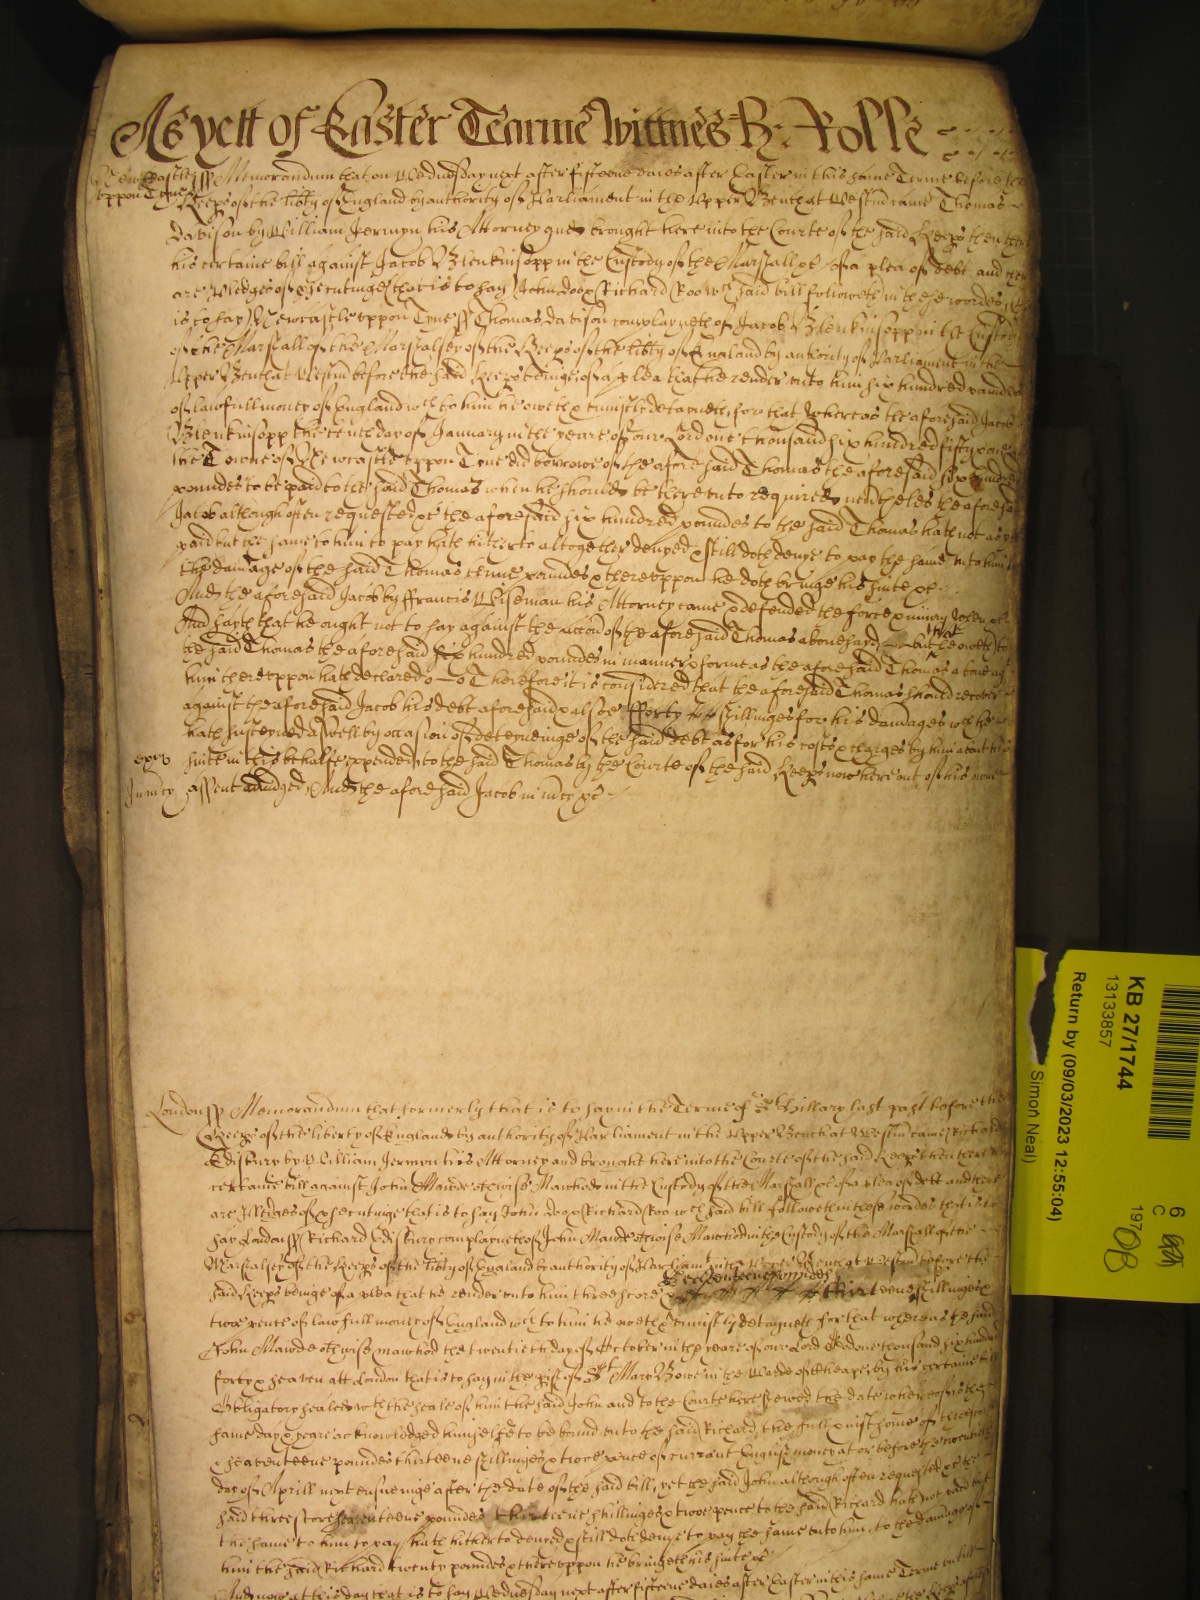 As yett of Easter Tearme Wittnes H: Rolle
Newcastle
uppon Tyne
ss Memorandum that on Wednesday next after fifteene daies after Easter in this same Terme before the
Keeps of the libty of England by authority of Parliament in the Upper Bench at Westm came Thomas
Davison by William Jermyn his Attorney and brought here into the Courte of the said Keeps then there
his certaine bill against Jacob Blenkinsopp in the Custody of the Marshall &c of a plea of debt and there
are Pledges of psecutinge that is to say John doo & Richard Roo wch said bill followeth in these wordes that
is to say Newcastle uppon Tyne ss Thomas davison complayneth of Jacob Blenkinsopp in the Custody
of the Marshall of the Marshalsey of the Keeps of the libty of England by authority of Parliament in the
Upper Bench at Westm before the said Keeps beinge of a plea that he render unto him six hundred poundes
of lawfull money of England wch to him he oweth & uniustly detayneth for that whereas the aforesaid Jacob
Blenkinsopp the tenth day of January in the yeare of our Lord one thousand six hundred fifty & one att
the Towne of Newcastle uppon Tyne did borrowe of the aforesaid Thomas the aforesaid six hundred
poundes to be paid to the said Thomas when he should be thereunto required neverthelesse the aforesaid
Jacob although often requested &c the aforesaid six hundred poundes to the said Thomas hath not as yett
paid but the same to him to pay hath hitherto altogether denyed & still doth denye to pay the same unto him to
the damage of the said Thomas tenne poundes & thereuppon he doth bringe his suite &c
And the aforesaid Jacob by Francis Wiseman his Attorney came & defended the force & iniury when &c
And sayth that he ought not to say against the accon of the aforesaid Thomas abovesaid but that he oweth to
the said Thomas the aforesaid six hundred poundes in manner & forme as the aforesaid Thomas above ag
him thereuppon hath declared Therefore it is considered that the aforesaid Thomas should recover
against the aforesaid Jacob his debt aforesaid & alsoe fforty shillinges for his damages wch he
hath susteyned aswell by occasion of deteyninge of the said debt as for his costs & charges by him about his
suite in this behalfe expended to the said Thomas by the Courte of the said Keeps now here out of his
assent adiudged And the aforesaid Jacob in mcy &c
In mcy
London ss Memorandum that formerly that is to say in the Terme of St Hillary last past before the
Keeps of the liberty of England by authority of Parliament in the Upper Bench at Westm came Richard
Edisbury by William Jermyn his Attorney and brought here into the Courte of the said Keeps then there his
certaine bill against John Mawde othwise Mawhod in the Custody of the Marshall &c of a plea of debt and there
are Pledges of psecutinge that is to say John doo & Richard Roo wch said bill followeth in these wordes that is to
say London ss Richard Edisbury complayneth of John Mawde othwise Mawhod in the Custody of the Marshall of the
Marshalsey of the Keeps of the libty of England by authority of Parliament in the Upper Bench at Westm before the
said Keeps beinge of a plea that he render unto him threescore & seaventeene poundes thirteene shillinges &
twoe pence of lawfull money of England wch to him he oweth & uniustly detayneth for that whereas the said
John Mawde othwise mawhod the twentieth day of October in the yeare of our Lord one thousand six hundred
forty & seaven att London that is to say in the pish of St Mary Bowe in the Warde of Cheape by his certaine bill
Obligatory sealed with the seale of him the said John and to the Courte here shewed the date whereof is the
same day & yeare acknowledged himselfe to be bound unto the said Richard in the full & iust some of threescore
& seaventeene poundes thirteene shillinges & twoe pence of currant English money at or before the twentieth
day of Aprill next ensueinge after the date of the said bill, yet the said John although often requested &c the
said threescore seaventeene poundes thirteene shillinges & twoe pence to the said Richard hath not paid but
the same to him to pay hath hitherto denyed & still doth denye to pay the same unto him, to the damage of
him the said Richard twenty poundes & thereuppon he bringeth his suite &c
And now at this day that is to say Wednesday next after fifteene daies after Easter in this same Terme untill
KB 27/1744
13133857
Return by (09/03/2023 12:55:04)
Simon Neal)
6
C
197